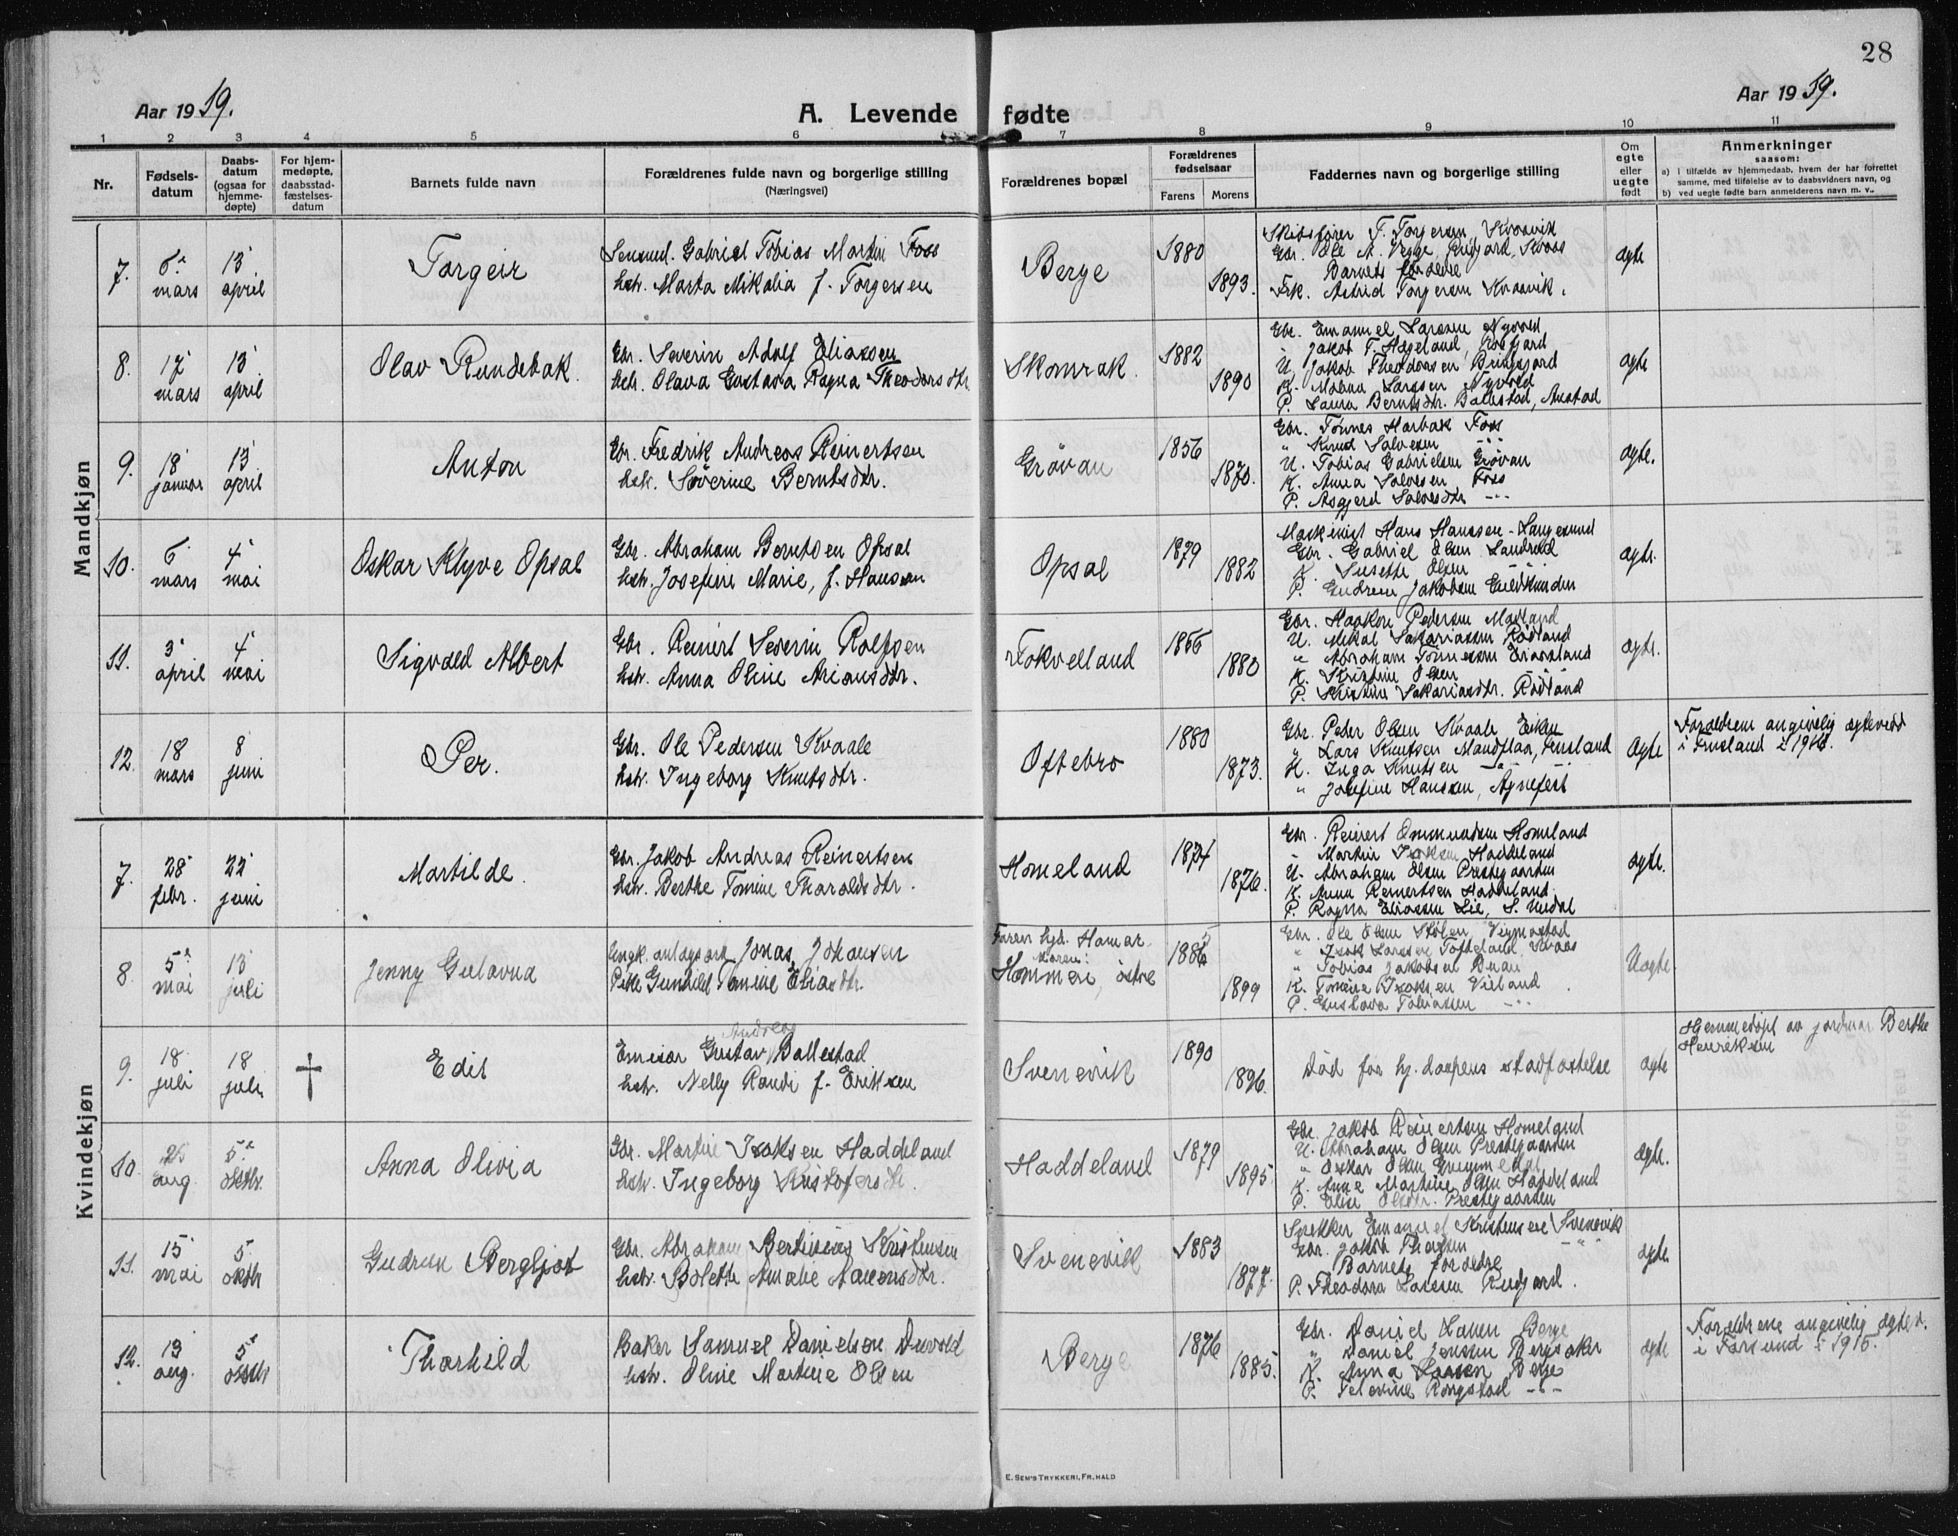 28
Aar 1919.
A. Levende fødte
Aar 1919.
1 2 3 4 5 6 7 8 9 10 11
Nr.
Fødsels-
datum
Daabs-
datum
(ogsaa for
hjemme-
døpte)
For hjem-
medøpte,
daabsstad-
fæstelses-
datum
Barnets fulde navn
Forældrenes fulde navn og borgerlige stilling
(Næringsvei)
Forældrenes bopæl
Forældrenes
fødselsaar
Farens Morens
Faddernes navn og borgerlige stilling
Om
egte
eller
uegte
født
Anmerkninger
saasom:
a) i tilfælde av hjemmedaab, hvem der har forrettet
samme, med tilføielse av to daabsvidners navn, og
b) ved uegte fødte barn anmelderens navn m. v.
Mandkjøn
7. 6 mars 13 april
Torgeir
Gabriel Tobias Martin Foss
hstr. Marta Mikalia f. Torgersen
Berge
1880 1893.
Skibsfører F. Torgersen Kvaavik
Gbr. Ole A. Vegge, Kvaas
Barnets forældre
Frk. Astrid Torgersen Kvaavik.
ægte
8. 17 mars 13 april
Olav Rundebak.
Gbr. Severin Adolf Eliassen
hstr. Olava Gustava Ragna Theodorsdtr
Skomrak.
1882 1890
Gbr. Emanuel Larssen Nyvold
" Jakob F. Hageland, Rosfjord
U. Jakob Theodorsen
K. Larssen Nyvold
P. Laura Berntsdtr. Ballestad, Austad
ægte
9. 18 januar 13 april
Anton
Gbr. Fredrik Andreas Reinertsen
hstr. Søverine Berntsdtr.
Grøvan
1856 1870.
Gbr. Tønnes Harbak Foss
" Knud Salvesen -"-
U. Tobias Gabrielsen Grøvan
K. Anna Salvesen Foss
P. Asgjerd Salvesdtr -"-
ægte.
10. 6 mars 4 mai
Oskar Klyve Opsal
Gbr. Abraham Berntsen Opsal
hstr. Josefine Marie, f. Hanssen
Opsal
1879 1882
Maskinist Hans Hanssen - Langesund
Gbr. Gabriel Olsen Landrud
K. Lisette Olsen
P. Gudrun Jakobsen
ægte.
11. 3 april 4 mai
Sigvald Albert
Gbr. Reinert Severin Rolfsen
hstr. Anna Oline Ariansdtr.
Fokvelland
1866 1880
Gbr. Haakon Pedersen Møgland
U. Mikal Sakariassen Rødland
" Abraham Tønnessen
K. Kristine Olsen
P. Kristine Sakariasdtr. Rødland
ægte.
12. 18 mars 8 juni
Per.
Gbr. Ole Pedersen Kvaale
hstr. Ingeborg Knutsdtr.
Oftebro
1880 1873.
Gbr. Peder Olsen Kvaale Eiken
" Lars Knutsen Mandflaa, Finsland
H. Inga Knutsen -"-
" Josefine Hanssen, Agnefest
Ægte
Forældrene angivelig ægteviet
i Finsland i 1916.
Kvindekjøn
7. 28 febr. 22 juni
Martilde.
Gbr. Jakob Andreas Reinertsen
hstr. Berthe Tomine Tharaldsdtr.
Homeland
1874 1876.
Gbr. Reinert Ommundsen Homeland
" Martin Isaksen Haddeland
U. Abraham Olsen Prestegaarden
K. Anna Reinertsen Haddeland
P. Ragna Eliassen Lie, S. Undal
ægte.
8. 5 mai 13 juli
Jenny Gulovna
Ungk. anlægsarb. Jonas Johansen
Pike Gunhild Tomine Eliasdtr.
Faren hjd. Hamar.
Moren:
Hommen, østre
1885 1899
Gbr. Ole Olsen Stølen, Vigmostad
" Isak Larssen Tofteland Kvaas
" Tobias Jakobsen Buan
K. Tomine Isaksen Vieland
P. Gustava Tobiassen -"-
Uægte
9. 18 juli 18 juli †
Edit
Emisær Gustav Andreas Ballestad
hstr. Nelly Randi f. Eriksen
Svenevik
1890 1896.
Død før hj. daapens stadfæstelse
ægte
Hjemmedøpt av jordmor Berthe
Henriksen
10. 26 aug. 5 oktbr.
Anna Olivia
Gbr. Martin Isaksen Haddeland
hstr. Ingeborg Kristofersdtr.
Haddeland
1879 1895.
Gbr. Jakob Reinertsen Homeland
U. Abraham Olsen Prestegaarden
" Oskar Olsen
K. Anne Martine Olsen Haddeland
P. Elise Olsdtr. Prestegaarden
ægte.
11. 15 mai 5 oktbr
Gudrun Bergljot
Gbr. Abraham Bertinius Kristensen
hstr. Bolette Amalie Aanensdtr.
Svenevik
1883 1877.
Snekker Emanuel Kristensen Svenevik
Gbr. Jakob Thorsen -"-
Barnets forældre
P. Theodora Larssen.
ægte
12. 13 aug. 5 oktbr
Thorhild
Baker Samuel Danielsen Duvold
hstr. Oline Martine Olsen
Berge
1876 1885.
Gbr. Daniel Larsen Berge
" Daniel Jensen Bergsaker
K. Anna Larsen Berge
P. Rongstad -"-
ægte
Forældrene angivelig ægtev.
i Farsund i 1915.
E. SEM'S TRYKKERI, FR. HALD